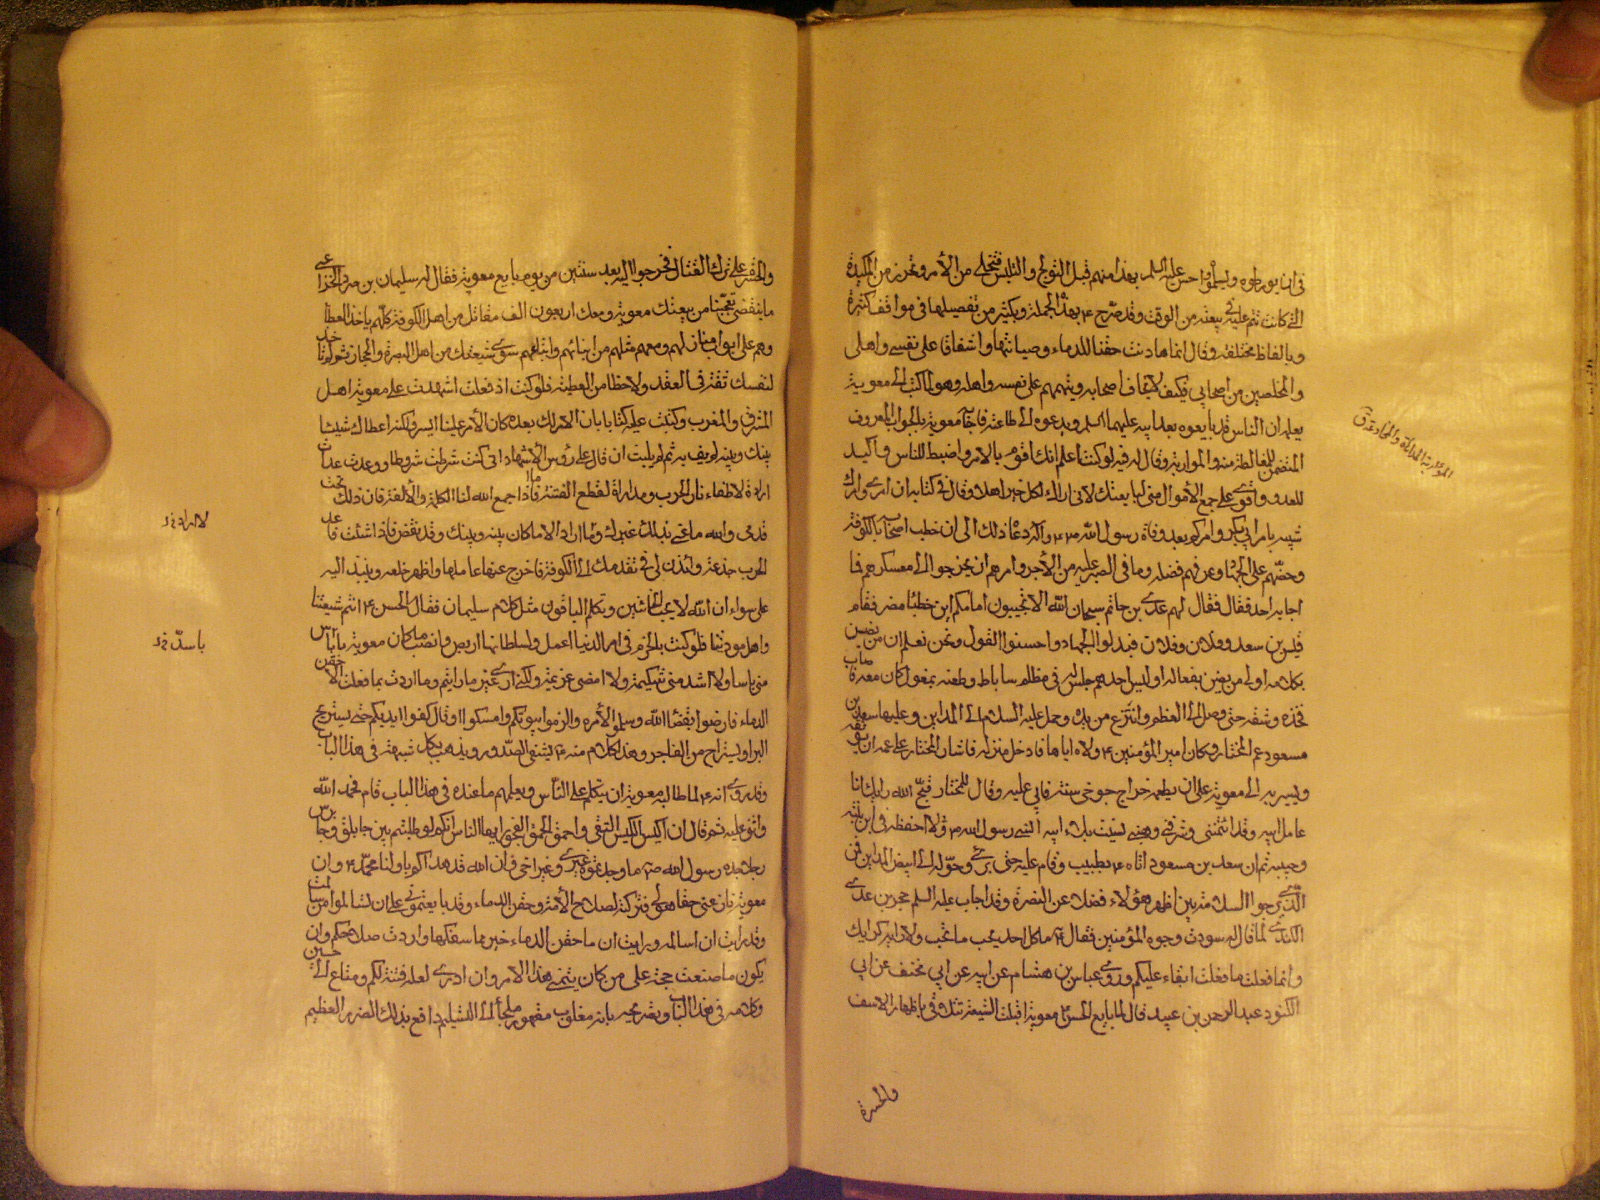 في ان يورطوه ويسلموه فاحس عليه السلم بهذا منهم قبل التولج والتلبس فتخلى من الأمر وتحرز من المكيدة
التي كانت تتم عليه في سعة من الوقت وقد صرح ع بهذه الجملة وبكثير من تفصيلها في مواقف كثيرة
وبالفاظ مختلفة وقال انما هادنت حقنا للدماء وصيانتها واشفاقا على نفسي واهلي
والمخلصين من اصحابي فكيف لا يخاف اصحابه ويتهمهم على نفسه واهله وهو لما كتب الى معوية
يعلم ان الناس قد بايعوه بعد ابيه عليهما السلم ويدعوه الى طاعته فاجابه معوية بالجواب المعروف
المتضمن للمغالطة منه والمواربة وقال له فيه لو كنت اعلم انك اقوم بالامر واضبط للناس واكيد
للعدو واقوى على جمع الأموال مني لبايعتك لأني اراك لكل خير اهلا وقال في كتابه ان امري وامرك
شبيه بامر ابي بكر وامركم بعد وفاة رسول الله ص دعاه ذلك الى ان خطب اصحابه بالكوفة
وحضهم على الجهاد وعرفهم فضله وما في الصبر عليه من الأجر وامرهم ان يخرجوا الى معسكرهم فما
اجابه احد فقال لهم عدي بن حاتم سبحان الله الا تجيبون امامكم اين خطباء مضر فقام
قيس بن سعد وفلان وفلان فبذلوا الجهاد واحسنوا القول ونحن نعلم ان من ضن
بكلامه اولى من يضن بفعاله اوليس احدهم جلس له في مظلم ساباط وطعنه بمغول كان معه فاصاب
فخذه وشقه حتى وصل الى العظم وانتزع من يده وحمل عليه السلام الى المداين وعليها سعد بن
مسعود عم المختار وكان امير المؤمنين ع ولاه اياها فادخل منزله فاشار المختار على عمه ان يوثقه
ويسير به الى معوية على ان يطعمه خراج جوخى سنة فابى عليه وقال للمختار قبح الله رايك انا
عامل ابيه وقد ائتمنني وشرفني وهبني نسيت بلاء ابيه انسى رسول الله ص ولا احفظه في ابن بنته
وحبيبه ثم ان سعد بن مسعود اتاه ع بطبيب وقام عليه حتى برئ وحوله الى ابيض المداين فمن
الذي يرجوا السلامة بين اظهر هؤلاء فضلا عن النصرة وقد اجاب عليه السلم حجر بن عدي
الكندي لما قال له سودت وجوه المؤمنين فقال ع ما كل احد يحب ما تحب ولا رايه كرايك
وانما فعلت ما فعلت ابقاء عليكم وروى عباس بن هشام عن ابيه عن ابي مخنف عن ابي
الكنود عبد الرحمن بن عبيد قال لما بايع الحسن ع معوية اقبلت الشيعة تتلاقى باظهار الاسف
والحسرة
والحسرة على ترك القتال فخرجوا اليه بعد سنتين من يوم بايع معوية فقال له سليمان بن صرد الخزاعي
ما ينقضي تعجبنا من بيعتك معوية ومعك اربعون الف مقاتل من اهل الكوفة كلهم ياخذ العطا
وهم على ابواب منازلهم ومعهم مثلهم من ابنائهم واتباعهم سوى شيعتك من اهل البصرة والحجاز ثم لم تاخذ
لنفسك ثقة في العقد ولا حظا من العطية فلو كنت اذ فعلت اشهدت على معوية اهل
المشرق والمغرب وكتبت عليه كتابا بان الامر لك بعده كان الأمر علينا ايسر ولكنه اعطاك شيئا
بينك وبينه لم يف به ثم لم يلبث ان قال على رؤس الأشهاد اني كنت شرطت شروطا ووعدت عدات
ارادة لاطفاء نار الحرب ومداراة لقطع الفتنة فاما اذا جمع الله لنا الكلمة والألفة فان ذلك تحت
قدمي والله ما عنى بذلك غيرك وما اراد الا ما كان بينه وبينك وقد نقض فاذا شئت فاعد
الحرب جذعة وائذن لي في تقدمك الى الكوفة فاخرج عنها عاملها واظهر خلعه وينبذ اليه
على سواء ان الله لا يحب الخائنين وتكلم الباقون مثل كلام سليمان فقال الحسن ع انتم شيعتنا
واهل مودتنا فلو كنت بالحزم في امر الدنيا اعمل ولسلطانها اربض وانصب ما كان معوية بابأس
مني باسا ولا اشد مني شكيمة ولا امضى عزيمة ولكني ارى غير ما رايتم وما اردت بما فعلت الا حقن
الدماء فارضوا بقضاء الله وسلموا لأمره والزموا بيوتكم وامسكوا وقال كفوا ايديكم حتى يستريح
البر او يستراح من الفاجر وهذا كلام منه ع يشفي الصدور ويذهب بكل شبهة في هذا الباب
وقد روي انه ع لما طالبه معوية ان يتكلم على الناس ويعلمهم ما عنده في هذا الباب قام فحمد الله
واثنى عليه ثم قال ان اكيس الكيس التقى واحمق الحمق الفجور ايها الناس انكم لو طلبتم بين جابلق وجابرس
رجلا جده رسول الله ص ما وجدتموه غيري وغير اخي وان الله قد هداكم باولنا محمد ع وان
معوية نازعني حقا هو لي فتركته لصلاح الأمة وحقن الدماء وقد بايعتموني على ان تسالموا من سالمت
وقد رايت ان اسالمه ورايت ان ما حقن الدماء خير مما سفكها واردت صلاحكم وان
يكون ما صنعت حجة على من كان يتمنى هذا الامر وان ادري لعله فتنة لكم ومتاع الى حين
وكلامه في هذا الباب وتصريحه بانه مغلوب مقهور ملجأ الى التسليم دافع بذلك الضرر العظيم
لا اراد خ
باسد خ